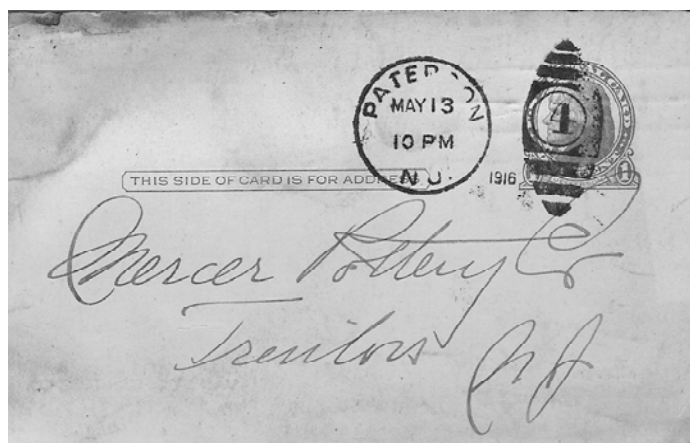 PATERSON
MAY 13
10 PM
N.J.
1916
4
THIS SIDE OF CARD IS FOR ADDRESS
Mercer Pottery Co
Trenton
N J